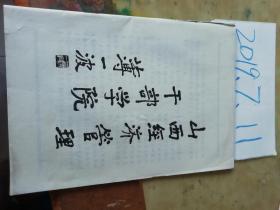 山西經济管理
干部学院
薄一波
2019.7.11